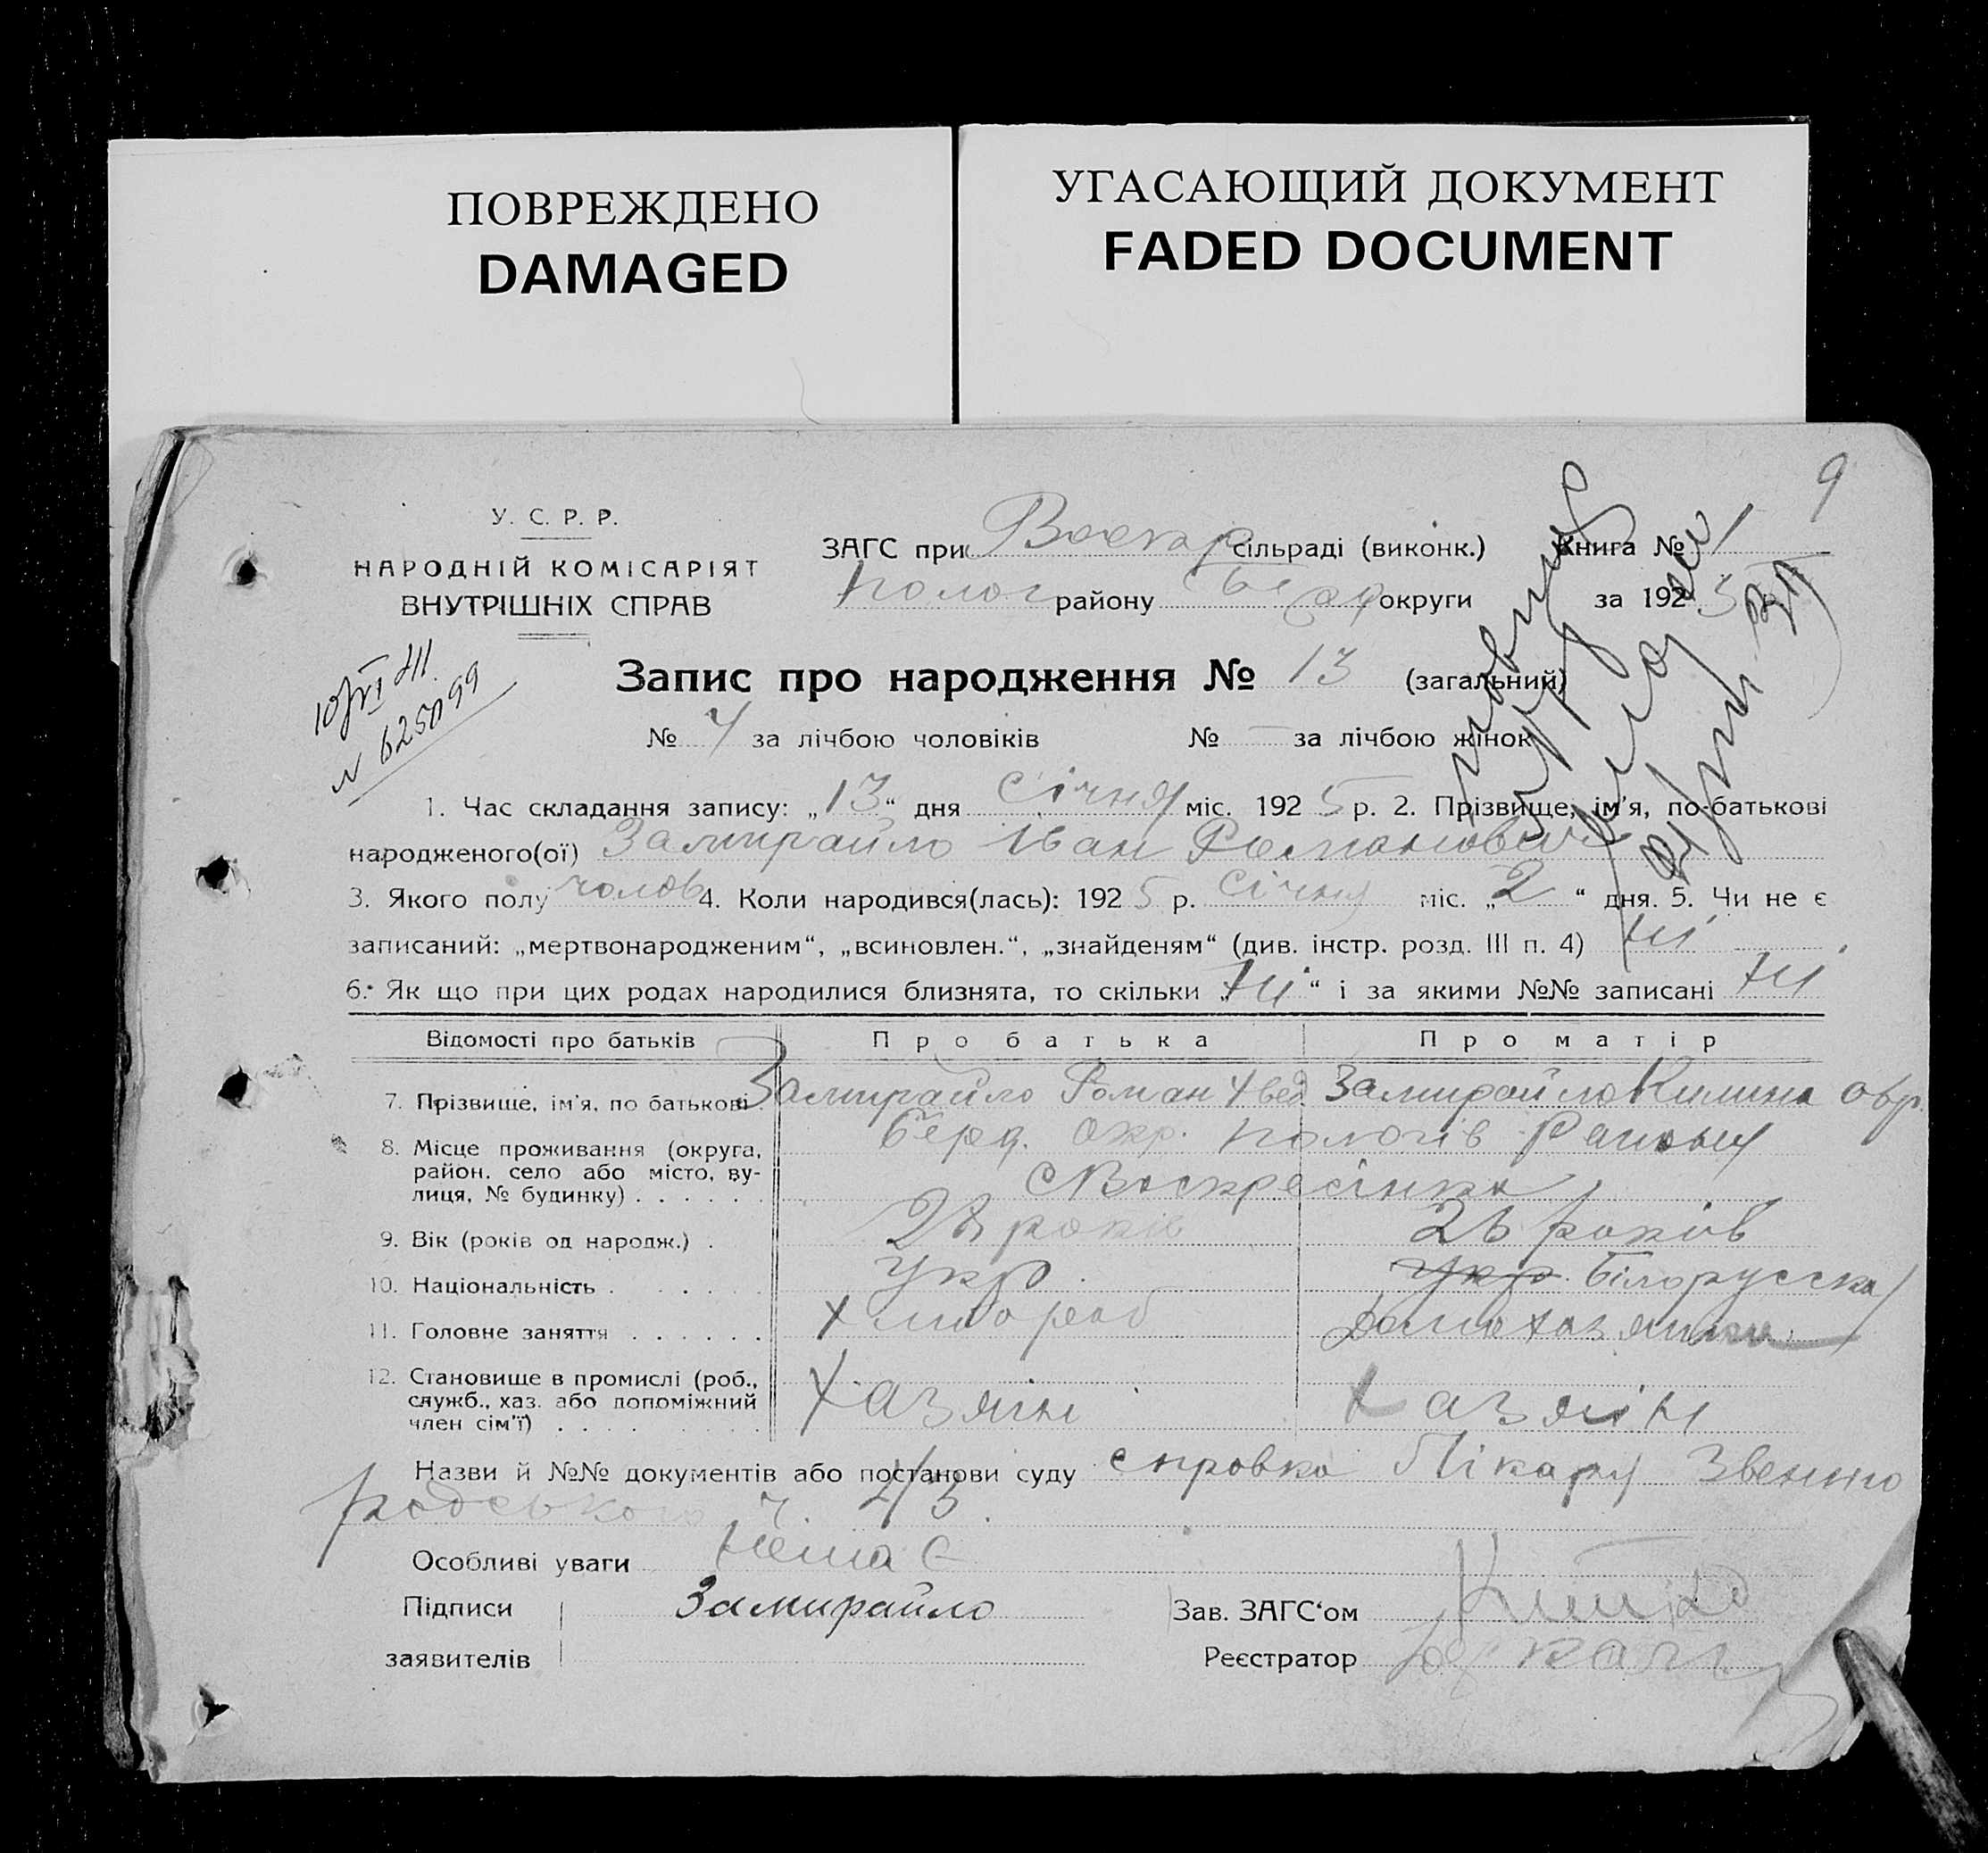 ПОВРЕЖДЕНО
DAMAGED
УГАСАЮЩИЙ ДОКУМЕНТ
FADED DOCUMENT
9
У. С. Р. Р.
НАРОДНІЙ КОМІСАРІЯТ
ВНУТРІШНІХ СПРАВ
ЗАГС при Воскр сільраді (виконк.) Книга № 1
Полог району Берд округи за 1925
10/VI 41.
N 625099
Запис про народження № 13 (загальний)
№ 7 за лічбою чоловіків № — за лічбою жінок
1. Час складання запису: „13“ дня Січня міс. 1925 р. 2. Прізвище, ім'я, по-батькові
народженого(ої) Замирайло Іван Романович
3. Якого полу чолов 4. Коли народився(лась): 1925 р. Січня міс. „2“ дня. 5. Чи не є
записаний: „мертвонародженим“, „всиновлен.“, „знайденям“ (див. інстр. розд. III п. 4) Ні
6. Як що при цих родах народилися близнята, то скільки „Ні“ і за якими №№ записані Ні
Відомості про батьків Про батька Про матір
7. Прізвище, ім'я, по батькові Замирайло Роман Замирайло Килина
8. Місце проживання (округа, район, село або місто, вулиця, № будинку) Берд. окр. Пологів Району
С Воскресінка
9. Вік (років од народж.) 28 років 26 років
10. Національність укр. укр. Білорусска
11. Головне заняття Хлибороб Домохазяйка
12. Становище в промислі (роб., служб., хаз. або допоміжний член сім'ї) Хазяїн Хазяїн
Назви й №№ документів або постанови суду справка Лікаря Звенно
родського ч. 43.
Особливі уваги Нема є
Підписи Замирайло Зав. ЗАГС'ом
заявителів Реєстратор